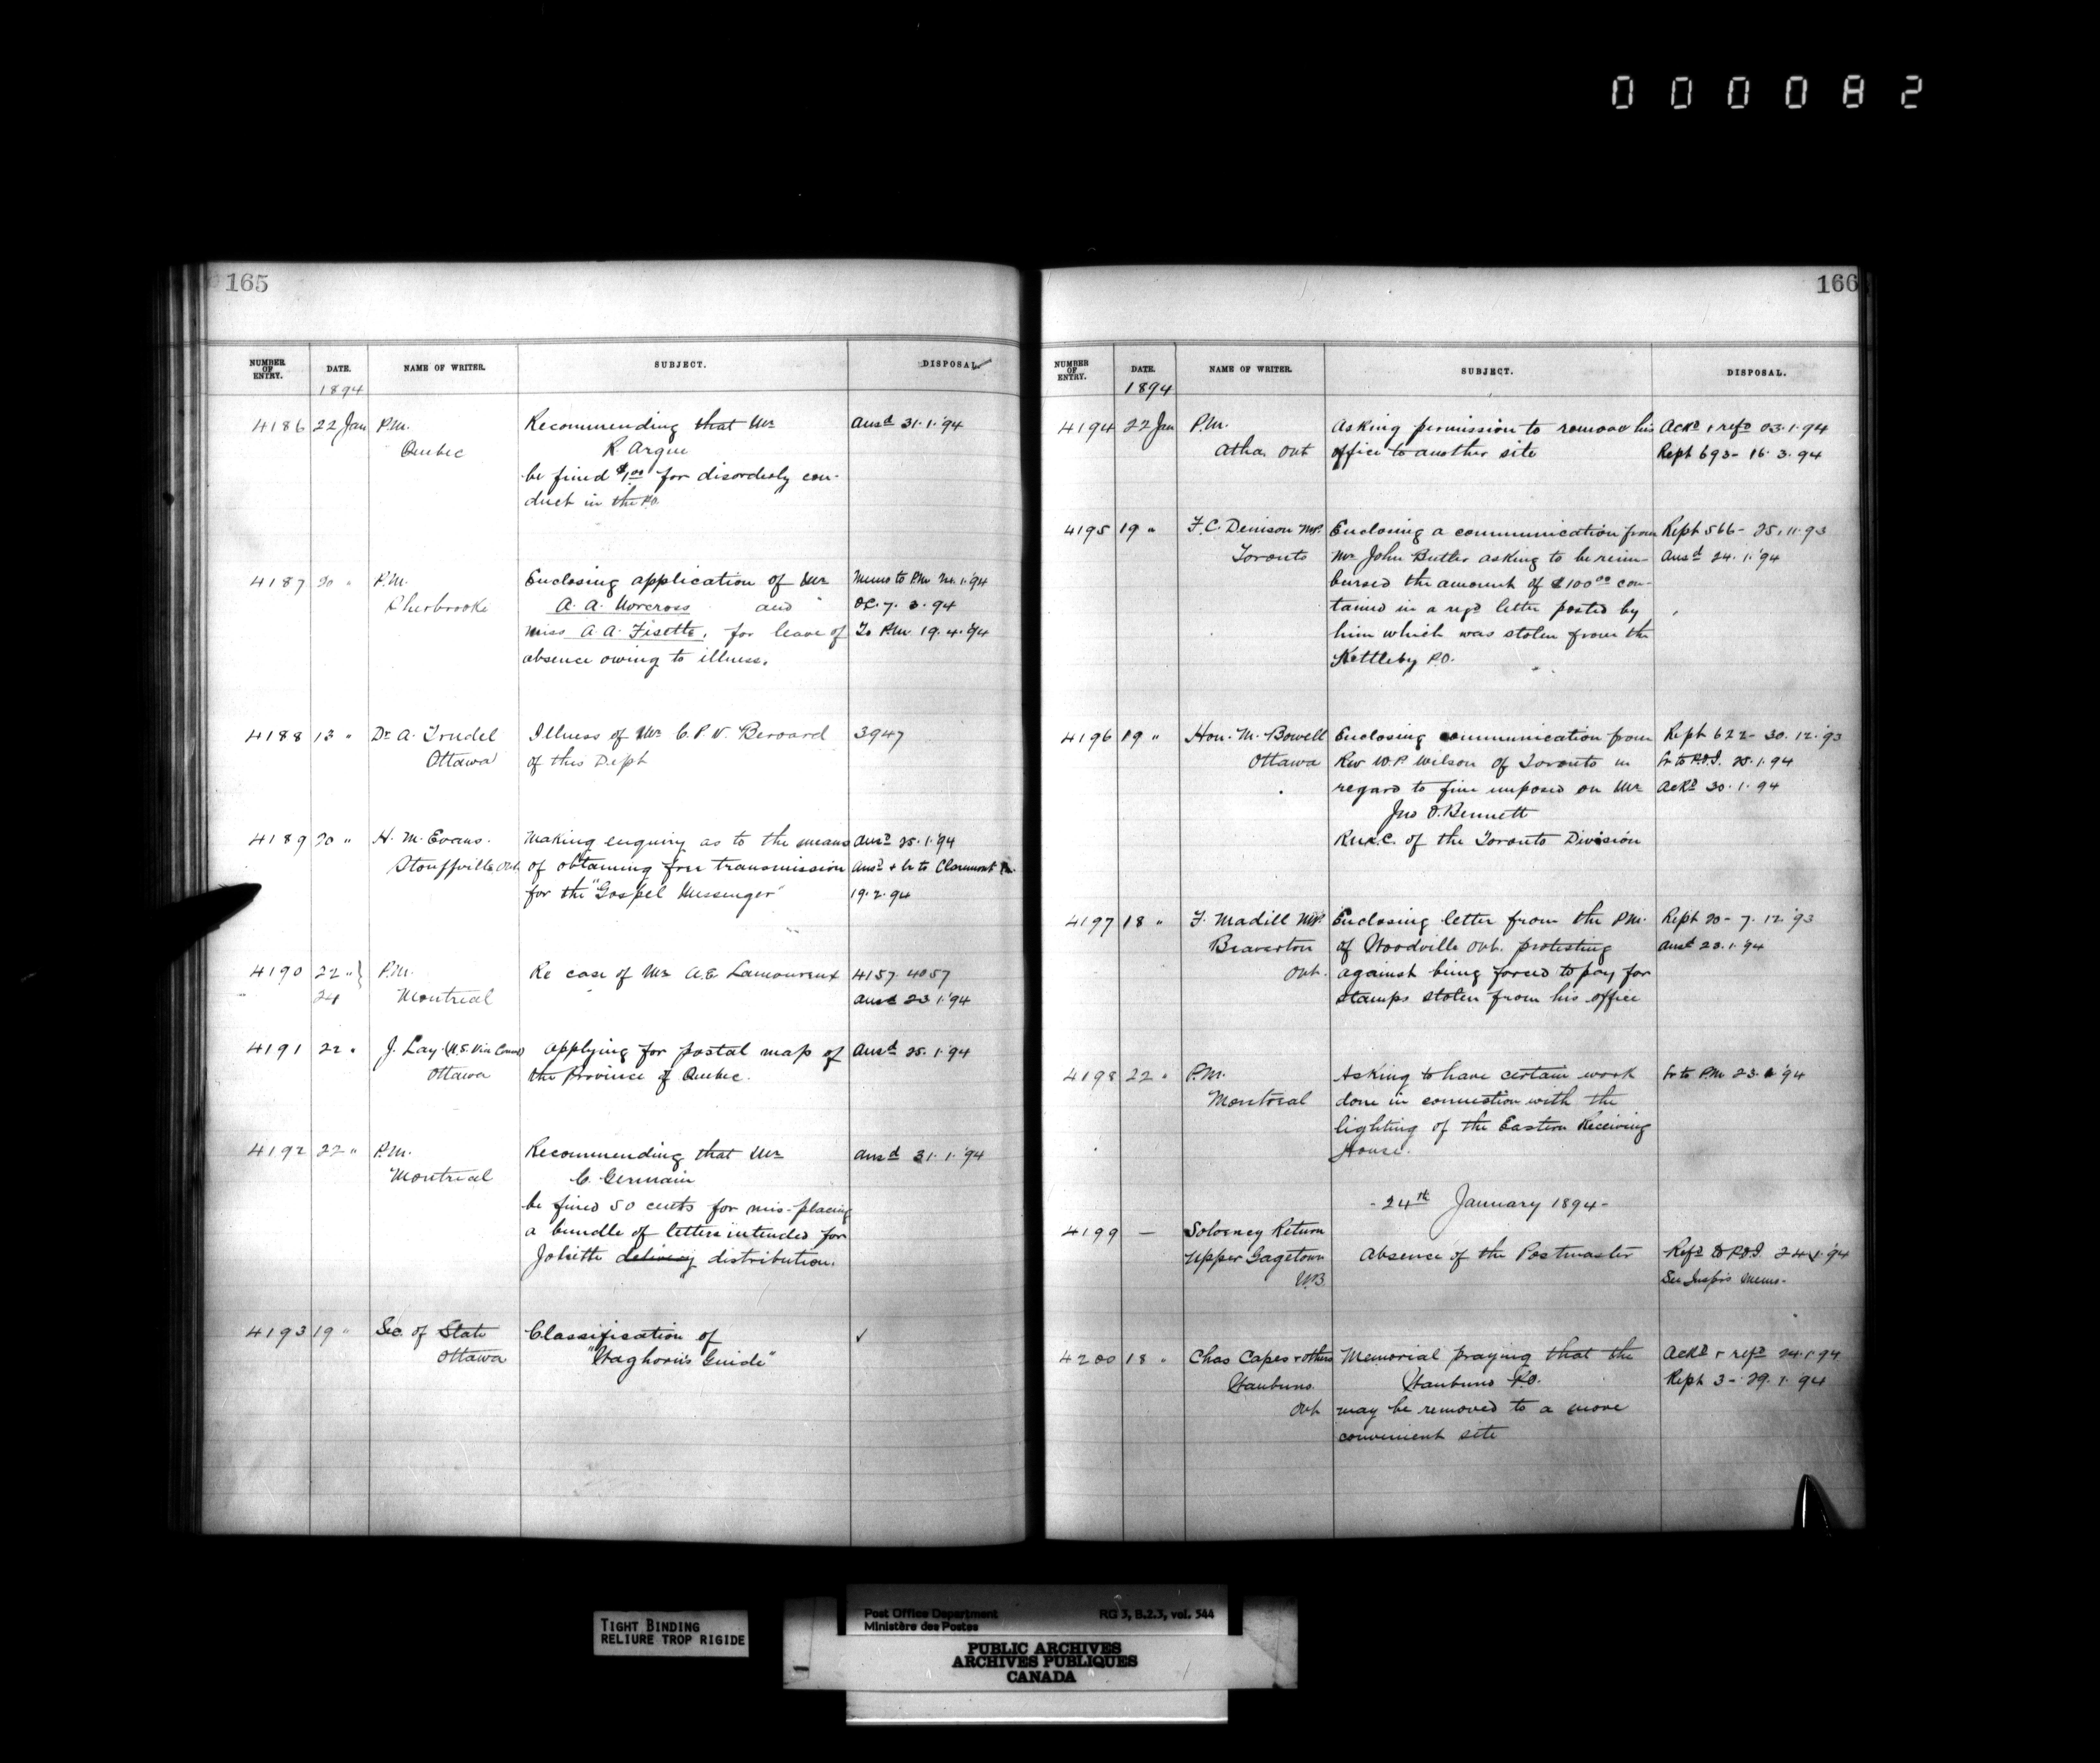 000082
165
NUMBER OF ENTRY. DATE. NAME OF WRITER. SUBJECT. DISPOSAL
1894
4186 22 Jan P.M. Recommending that Mr Ansd 31.1.'94
Quebec R. Argue
be fined $1.00 for disorderly con-
duct in the P.O.
4187 20 " P.M. Enclosing application of Mr Memo to P.M. 1.'94
Sherbrooke A. A. Norcross and O.C. 7.3.94
Miss A. A. Fisette, for leave of To P.M. 19.4.'94
absence owing to illness.
4188 13 " Dr A. Trudel Illness of Mr C. P. V. Berard 3947
Ottawa of this Dept
4189 20 " H. M. Evans. Making enquiry as to the means Ansd 25.1.'94
Stouffville, Ont of obtaining free transmission Ansd + lr to Claremont
for the "Gospel Messenger" 19.2.94
4190 22 " } P.M. Re case of Mr A. E. Lamoureux 4157. 4057
24 Montreal Ansd 23.1.'94
4191 22 " J. Lay (U.S. Vice Consul) Applying for postal map of Ansd 25.1.'94
Ottawa the Province of Quebec.
4192 22 " P.M. Recommending that Mr Ansd 31.1.'94
Montreal C. Germain
be fined 50 cents for mis-placing
a bundle of letters intended for
Joliette delivery distribution.
4193 19 " Sec. of State Classification of ✓
Ottawa "Waghorn's Guide"
166
NUMBER OF ENTRY. DATE. NAME OF WRITER. SUBJECT. DISPOSAL.
1894
4194 22 Jan P.M. Asking permission to remove his Ackd + refd 23.1.94
Atha, Ont office to another site Rept 693 - 16.3.94
4195 19 " F. C. Denison M.P. Enclosing a communication from Rept 566 - 25.11.93
Toronto Mr John Butler asking to be reim- Ansd 24.1.'94
bursed the amount of $100.00 con-
tained in a regd letter posted by
him which was stolen from the
Kettleby P.O.
4196 19 " Hon. M. Bowell Enclosing communication from Rept 622 - 30.12.'93
Ottawa Rev W. P. Wilson of Toronto in lr to P.O.I. 25.1.94
regard to fine imposed on Mr Ackd 30.1.94
Jno O. Bennett
R.M.C. of the Toronto Division
4197 18 " F. Madill M.P. Enclosing letter from the P.M. Rept 20 - 7.12.'93
Beaverton of Woodville Ont. protesting Ansd 23.1.94
Ont. against being forced to pay for
stamps stolen from his office
4198 22 " P.M. Asking to have certain work lr to P.M. 23.1.'94
Montreal done in connection with the
lighting of the Eastern Receiving
House.
- 24th January 1894 -
4199 — Solvency Return
Upper Gagetown Absence of the Postmaster Refd to P.O.I. 24.1.'94
N.B. See Inspr's Memo.
4200 18 " Chas Capes + others Memorial praying that the Ackd + refd 24.1.94
P.O. Rept 3 - 29.1.94
Ont may be removed to a more
convenient site
TIGHT BINDING
RELIURE TROP RIGIDE
Post Office Department RG 3, B.2.3, vol. 544
Ministère des Postes
PUBLIC ARCHIVES
ARCHIVES PUBLIQUES
CANADA